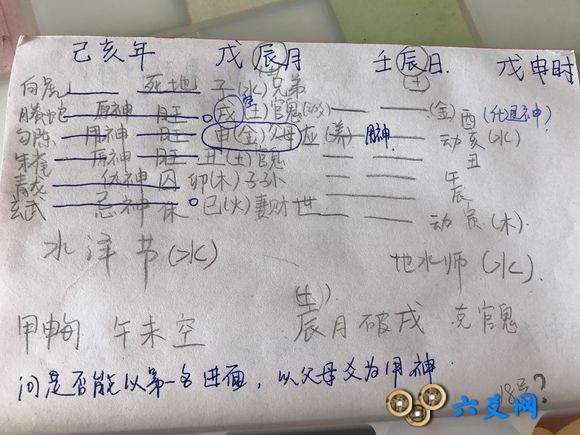 己亥年 戊辰月 壬辰日 戊申时
(土)
白虎 死地 子(水)兄弟
螣蛇 原神 旺 戌(土)官鬼 (金)酉
勾陈 用神 旺 申(金)父母应 用神 动亥(水)
朱雀 原神 旺 丑(土)官鬼 丑
青龙 仇神 囚 卯(木)子孙 午
玄武 忌神 休 巳(火)妻财世 辰
动寅(木)
水泽节(水) 地水师(水)
(土)
甲申旬 午未空 辰月破戌 克官鬼
问是否能以第一名进面,以父母爻为用神
18号?
六爻网